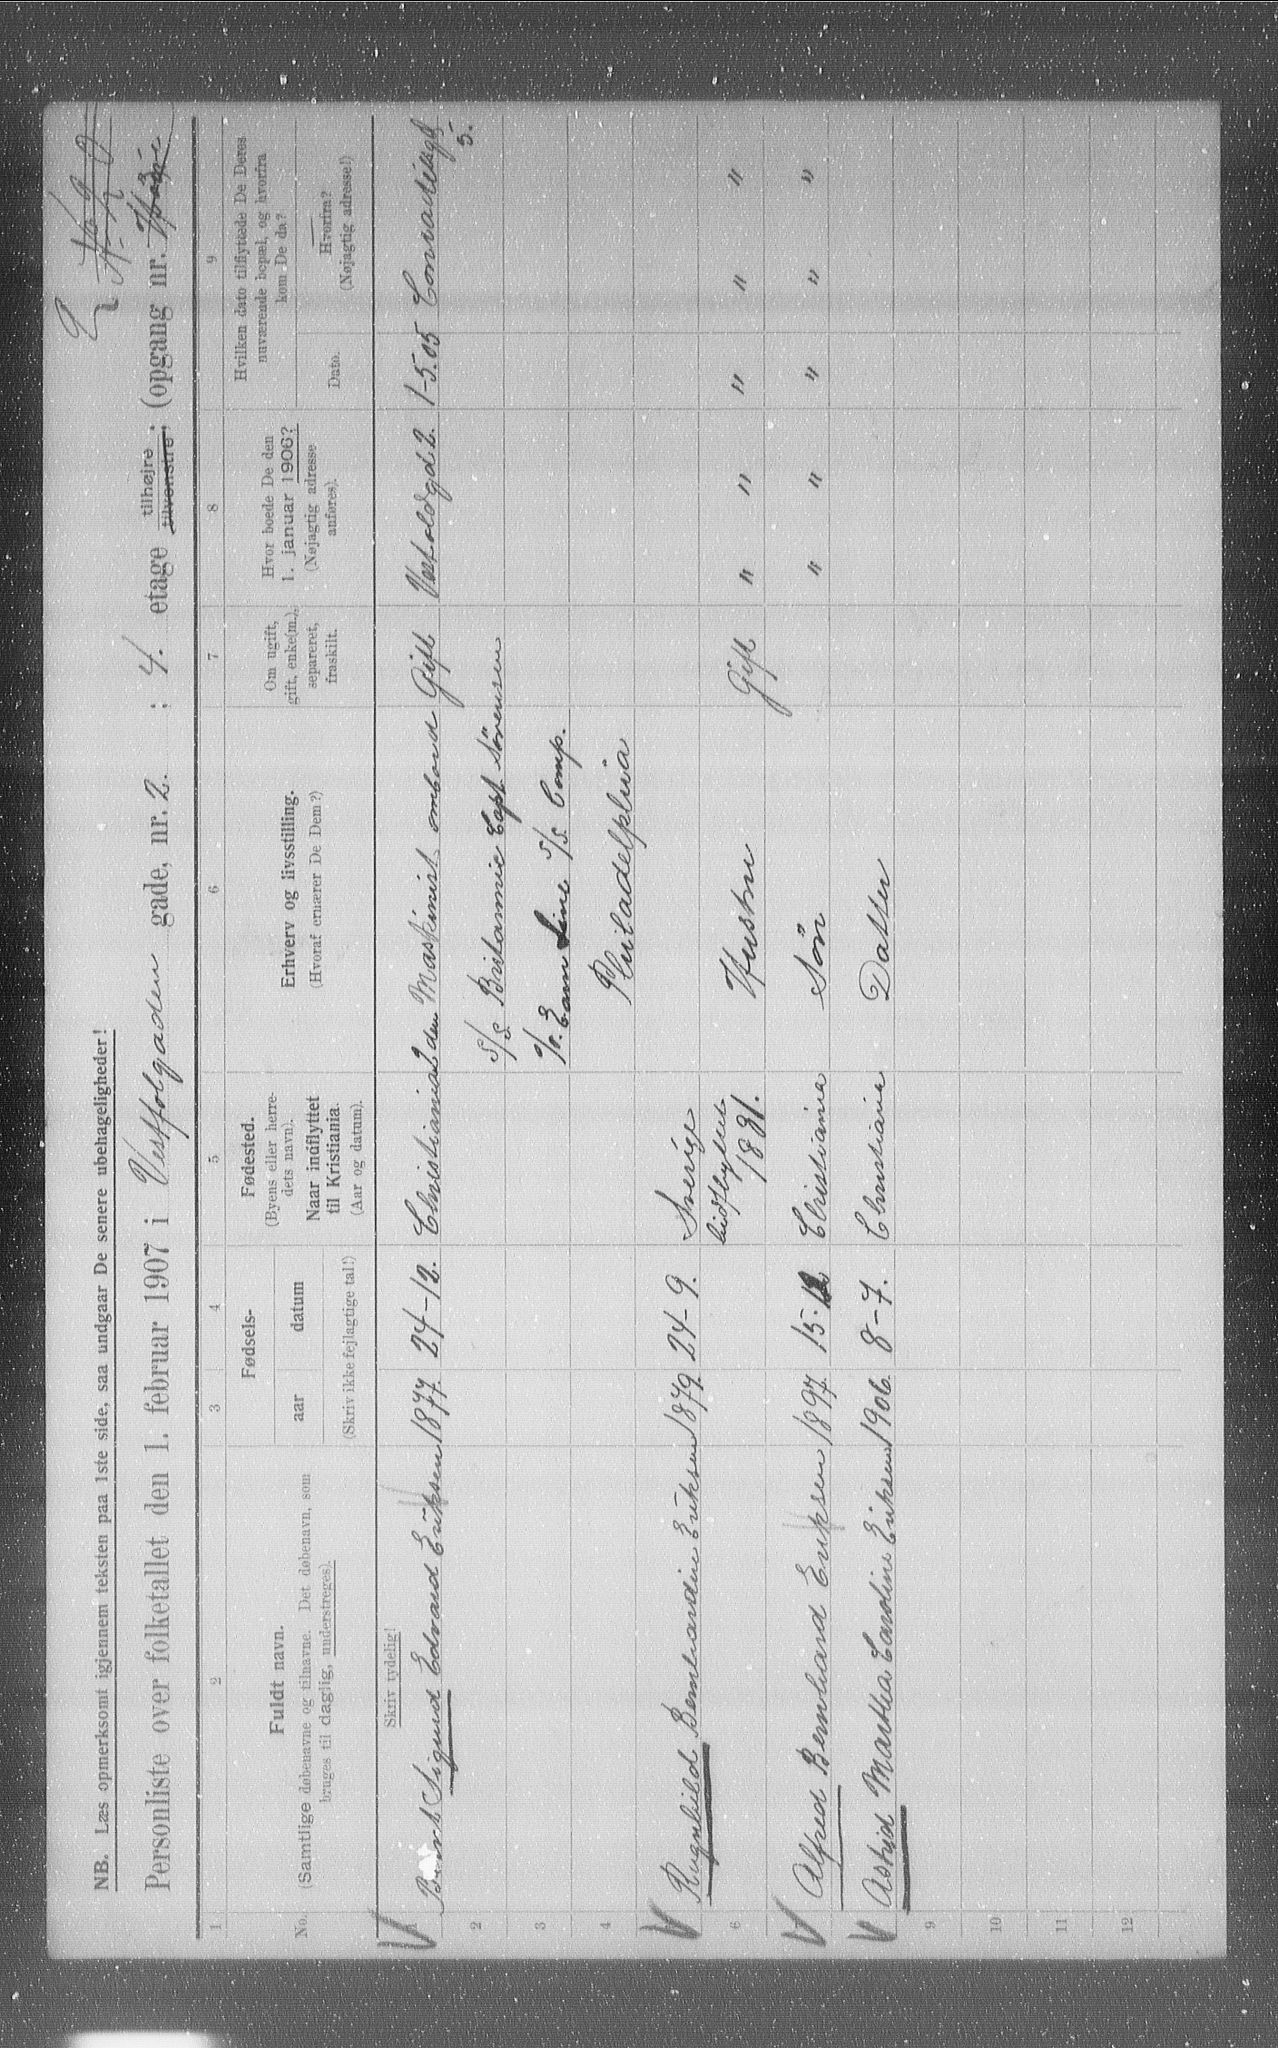 NB. Læs opmerksomt igjennem teksten paa 1ste side, saa undgaar De senere ubehageligheder!
Personliste over folketallet den 1. februar 1907 i Vestfolgaden gade, nr. 2. ; 4. etage tilhøjre tilvenstre; (opgang nr.
1 2 3 4 5 6 7 8 9
No.
Fuldt navn.
(Samtlige døbenavne og tilnavne. Det døbenavn, som
bruges til daglig, understreges).
Fødsels-
aar datum
(Skriv ikke fejlagtige tal!)
Fødested.
(Byens eller herre-
dets navn).
Naar indflyttet
til Kristiania.
(Aar og datum).
Erhverv og livsstilling.
(Hvoraf ernærer De Dem?)
Om ugift,
gift, enke(m.),
separeret,
fraskilt.
Hvor boede De den
1. januar 1906?
(Nøjagtig adresse
anføres).
Hvilken dato tilflyttede De Deres
nuværende bopæl, og hvorfra
kom De da?
Dato.
Hvorfra?
(Nøjagtig adresse!)
Skriv tydelig!
1 Sigurd Edvard Eriksen 1877. 24-12. Christiania 2den Maskinist ombord Gift Vestfoldgd 2. 1-5.05 Conradisgd
5.
2 S/S Britannic Capt Sörensen
3 Earn Line S/S Comp.
4 Philadelphia
Ragnhild Bernhardine Eriksen 1879 24-9. Sverige
6 indflyttet Hustru Gift " " " " "
1881.
Alfred Bernhard Eriksen 1897 15- Christiania Sön " " " " "
Astrid Martha Caroline Eriksen 1906. 8-7. Christiania Datter
9
10
11
12